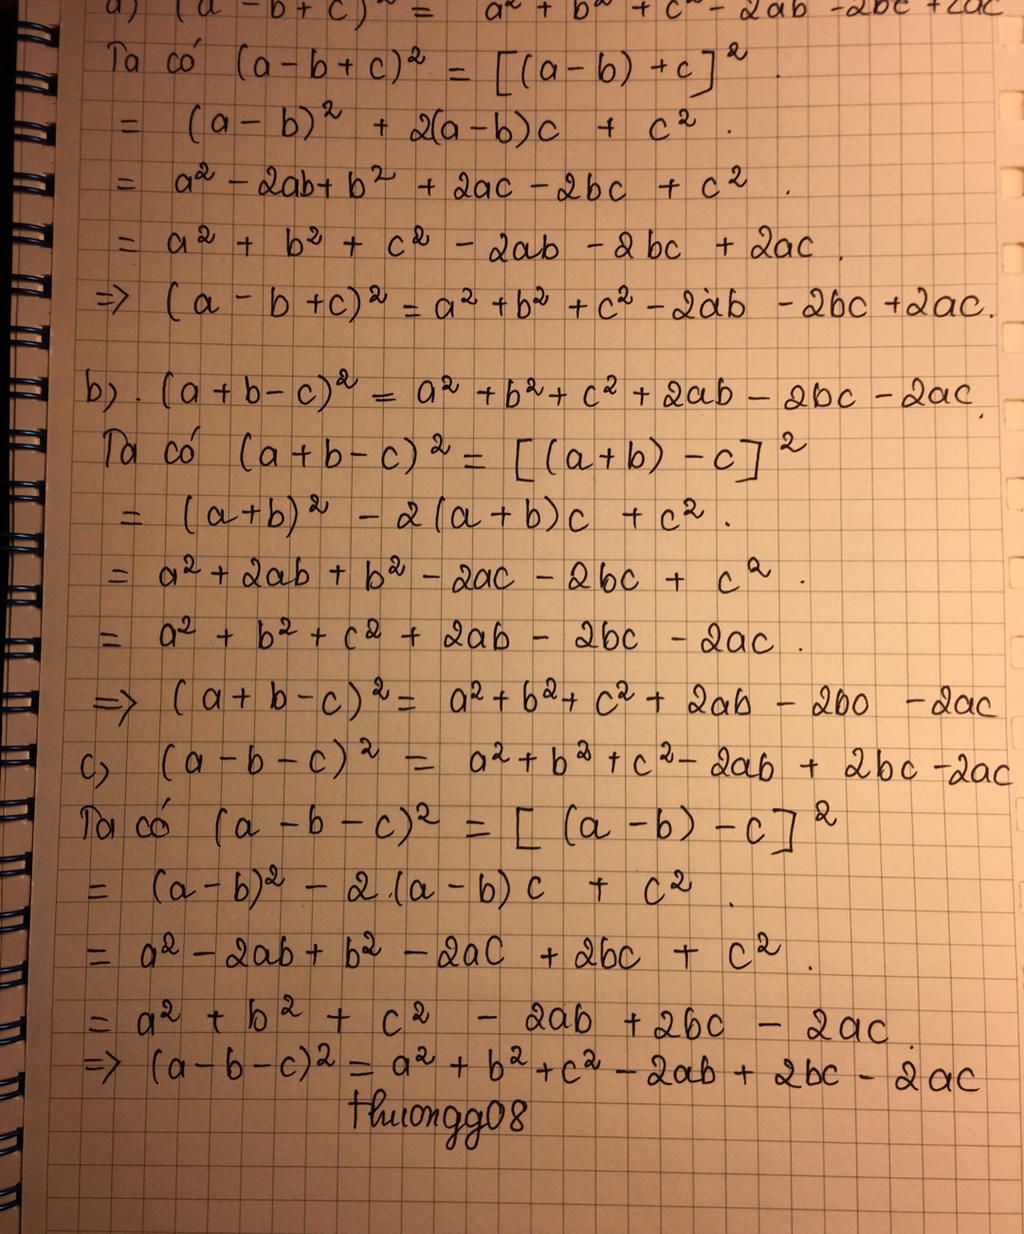 a) (a - b + c)² = a² + b² + c² - 2ab - 2bc + 2ac
Ta có (a - b + c)² = [(a - b) + c]².
= (a - b)² + 2(a - b)c + c².
= a² - 2ab + b² + 2ac - 2bc + c².
= a² + b² + c² - 2ab - 2bc + 2ac.
=> (a - b + c)² = a² + b² + c² - 2ab - 2bc + 2ac.
b). (a + b - c)² = a² + b² + c² + 2ab - 2bc - 2ac.
Ta có (a + b - c)² = [(a + b) - c]²
= (a + b)² - 2(a + b)c + c².
= a² + 2ab + b² - 2ac - 2bc + c².
= a² + b² + c² + 2ab - 2bc - 2ac.
=> (a + b - c)² = a² + b² + c² + 2ab - 2bc - 2ac
c) (a - b - c)² = a² + b² + c² - 2ab + 2bc - 2ac
Ta có (a - b - c)² = [(a - b) - c]²
= (a - b)² - 2.(a - b)c + c².
= a² - 2ab + b² - 2ac + 2bc + c².
= a² + b² + c² - 2ab + 2bc - 2ac.
=> (a - b - c)² = a² + b² + c² - 2ab + 2bc - 2ac
thuongg08